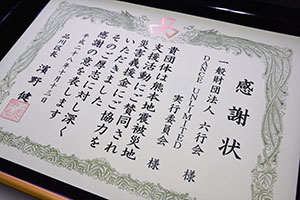 感謝状
一般財団法人 六行会 様
DANCE UNLIMITED 実行委員会 様
貴団体は熊本地震被災地
支援活動にご賛同され
災害義援金にご協力を
いただきました
そのご厚志に対し深く
感謝の意を表します
平成二八年十月十三日
品川区長 濱野 健